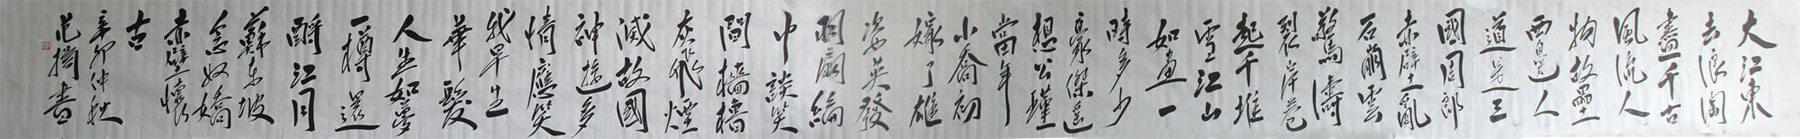 大江東
去浪淘
盡千古
風流人
物故壘
西邊人
道是三
國周郎
赤壁亂
石崩雲
驚濤
裂岸卷
起千堆
雪江山
如畫一
時多少
豪傑遙
想公瑾
當年
小喬初
嫁了雄
姿英發
羽扇綸
巾談笑
間檣櫓
灰飛煙
滅故國
神遊多
情應笑
我早生
華髮
人生如夢
一樽還
酹江月
蘇東坡
念奴嬌
赤壁懷
古
辛卯仲秋
范書